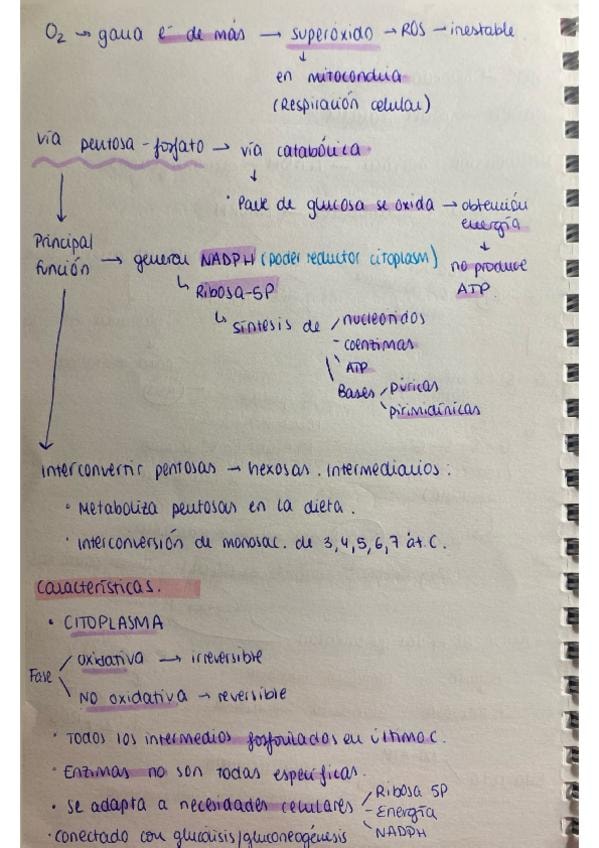 O₂ → gana e⁻ de más → superóxido → ROS → inestable
↓
en mitocondria
(Respiración celular)
vía pentosa-fosfato → vía catabólica
↓
· Parte de glucosa se oxida → obtención
energía
↓
no produce
ATP
Principal
función → generar NADPH (poder reductor citoplasm)
↳ Ribosa-5P
↳ síntesis de / nucleótidos
- coenzimas
\ ATP
\ Bases / púricas
\ pirimidínicas
Interconvertir pentosas → hexosas. Intermediarios:
· Metaboliza pentosas en la dieta.
· Interconversión de monosac. de 3,4,5,6,7 át. C.
Características.
· CITOPLASMA
Fase / oxidativa → irreversible
\ NO oxidativa → reversible
· Todos los intermedios fosforilados en último C.
· Enzimas no son todas específicas.
· Se adapta a necesidades celulares / Ribosa 5P
- Energía
\ NADPH
· conectado con glucólisis/gluconeogénesis